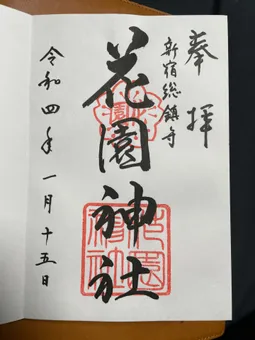 奉拝
新宿総鎮守
花園神社
令和四年一月十五日
花園神社